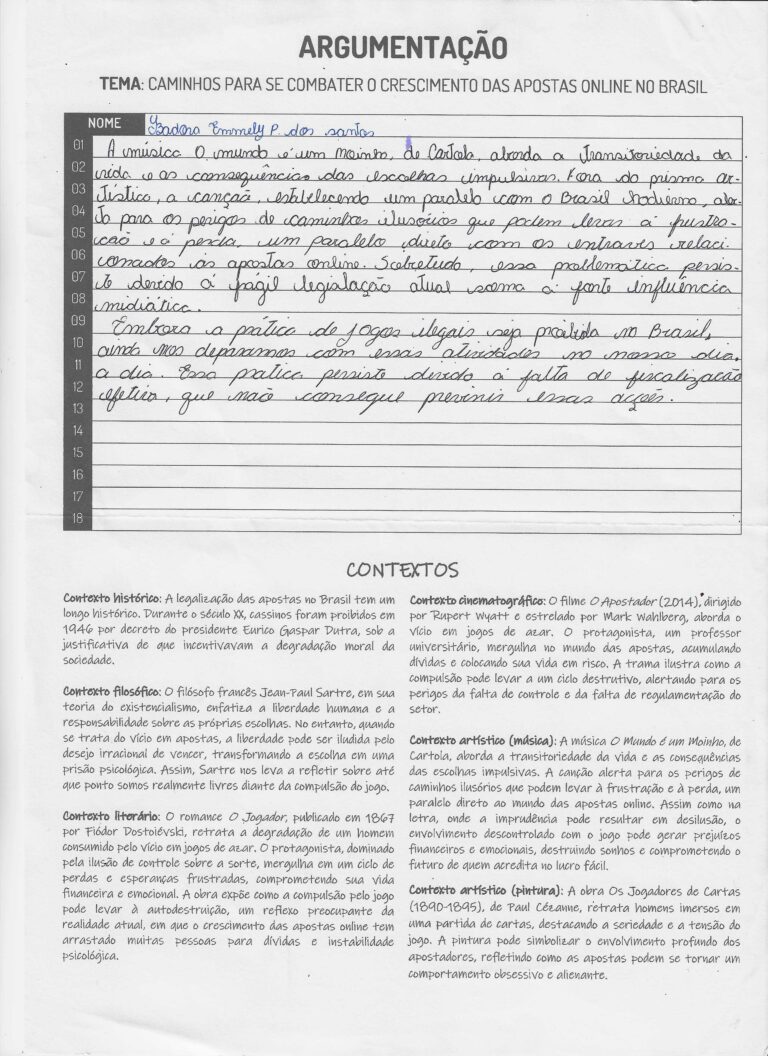 ARGUMENTAÇÃO
TEMA: CAMINHOS PARA SE COMBATER O CRESCIMENTO DAS APOSTAS ONLINE NO BRASIL
NOME Ysadora Emmely P. dos santos
01 A música O mundo é um moinho, de Cartola, aborda a transitoriedade da
02 vida e as consequências das escolhas impulsivas. Fora do prisma ar-
03 tístico, a canção, estabelecendo um paralelo com o Brasil Moderno, aler-
04 ta para os perigos de caminhos ilusórios que podem levar á frustra-
05 ção e á perda, um paralelo direto com os entraves relaci-
06 onados ás apostas online. Sobretudo, essa problemática persis-
07 te devido á frágil legislação atual soma á forte influência
08 midiática.
09 Embora a prática de jogos ilegais seja proibida no Brasil,
10 ainda nos deparamos com essas atividades no nosso dia,
11 a dia. Essa pratica persiste devido á falta de fiscalização
12 efetiva, que não consegue previnir essas acções.
13
14
15
16
17
18
CONTEXTOS
Contexto histórico: A legalização das apostas no Brasil tem um
longo histórico. Durante o século XX, cassinos foram proibidos em
1946 por decreto do presidente Eurico Gaspar Dutra, sob a
justificativa de que incentivavam a degradação moral da
sociedade.
Contexto filosófico: O filósofo francês Jean-Paul Sartre, em sua
teoria do existencialismo, enfatiza a liberdade humana e a
responsabilidade sobre as próprias escolhas. No entanto, quando
se trata do vício em apostas, a liberdade pode ser iludida pelo
desejo irracional de vencer, transformando a escolha em uma
prisão psicológica. Assim, Sartre nos leva a refletir sobre até
que ponto somos realmente livres diante da compulsão do jogo.
Contexto literário: O romance O Jogador, publicado em 1867
por Fiódor Dostoiévski, retrata a degradação de um homem
consumido pelo vício em jogos de azar. O protagonista, dominado
pela ilusão de controle sobre a sorte, mergulha em um ciclo de
perdas e esperanças frustradas, comprometendo sua vida
financeira e emocional. A obra expõe como a compulsão pelo jogo
pode levar à autodestruição, um reflexo preocupante da
realidade atual, em que o crescimento das apostas online tem
arrastado muitas pessoas para dívidas e instabilidade
psicológica.
Contexto cinematográfico: O filme O Apostador (2014), dirigido
por Rupert Wyatt e estrelado por Mark Wahlberg, aborda o
vício em jogos de azar. O protagonista, um professor
universitário, mergulha no mundo das apostas, acumulando
dívidas e colocando sua vida em risco. A trama ilustra como a
compulsão pode levar a um ciclo destrutivo, alertando para os
perigos da falta de controle e da falta de regulamentação do
setor.
Contexto artístico (música): A música O Mundo é um Moinho, de
Cartola, aborda a transitoriedade da vida e as consequências
das escolhas impulsivas. A canção alerta para os perigos de
caminhos ilusórios que podem levar à frustração e à perda, um
paralelo direto ao mundo das apostas online. Assim como na
letra, onde a imprudência pode resultar em desilusão, o
envolvimento descontrolado com o jogo pode gerar prejuízos
financeiros e emocionais, destruindo sonhos e comprometendo o
futuro de quem acredita no lucro fácil.
Contexto artístico (pintura): A obra Os Jogadores de Cartas
(1890-1895), de Paul Cézanne, retrata homens imersos em
uma partida de cartas, destacando a seriedade e a tensão do
jogo. A pintura pode simbolizar o envolvimento profundo dos
apostadores, refletindo como as apostas podem se tornar um
comportamento obsessivo e alienante.